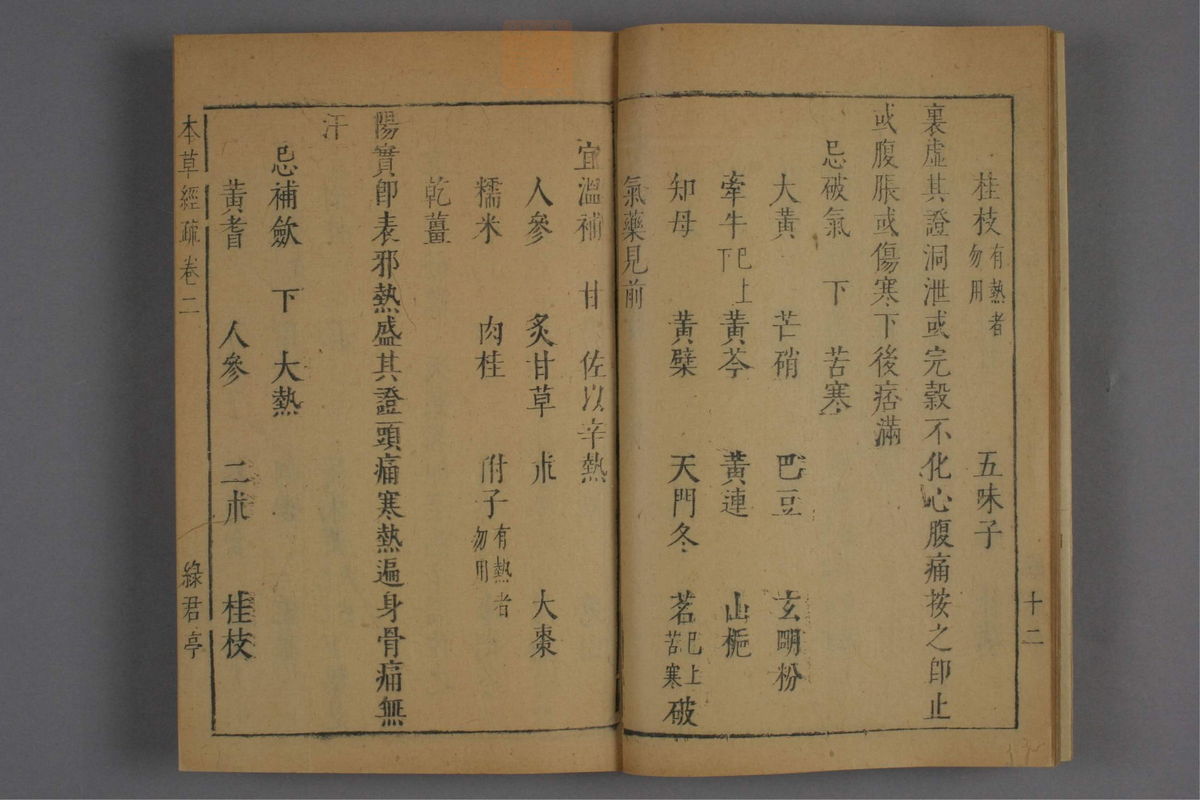 十二
桂枝有熱者勿用　五味子
裏虛其證洞泄或完穀不化心腹痛按之卽止
或腹脹或傷寒下後痞滿
忌破氣　下　苦寒
大黃　芒硝　巴豆　玄明粉
牽牛巳上下　黃芩　黃連　山梔
知母　黃檗　天門冬　茗巳上苦寒　破
氣藥見前
宜溫補　甘　佐以辛熱
人參　炙甘草　朮　大棗
糯米　肉桂　附子有熱者勿用
乾薑
陽實卽表邪熱盛其證頭痛寒熱遍身骨痛無
汗
忌補歛　下　大熱
黃耆　人參　二朮　桂枝
本草經疏卷二　綠君亭